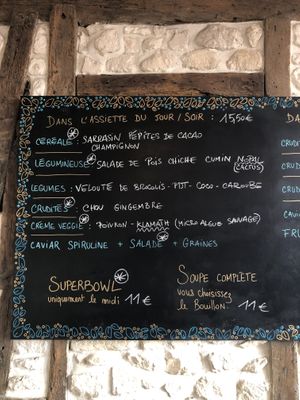 DANS L'ASSIETTE DU JOUR / SOIR : 15,50€
CÉRÉALE : SARRASIN PÉPITES DE CACAO
CHAMPIGNON
LÉGUMINEUSE : SALADE DE POIS CHICHE CUMIN NOPAL
(CACTUS)
LEGUMES : VELOUTÉ DE BROCOLIS - PDT - COCO - CAROUBE
CRUDITÉS : CHOU GINGEMBRE
CRÈME VEGGIE : POIVRON - KLAMATH (MICRO ALGUE SAUVAGE)
CAVIAR SPIRULINE + SALADE + GRAINES
SUPERBOWL
uniquement le midi 11€
SOUPE COMPLÈTE
vous choisissez
le Bouillon. 11€
DA
CÉ
LÉ
LÉ
CRU
CR
FRU